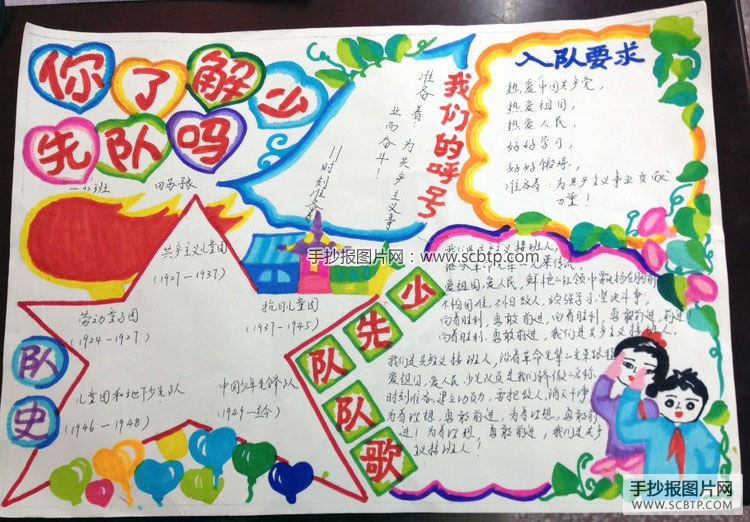 你了解少
先队吗
我们的呼号
准备着！为共产主义事
业而奋斗！
——时刻准备着
入队要求
热爱中国共产党，
热爱祖国，
热爱人民，
好好学习，
好好锻炼，
准备着：为共产主义事业贡献
力量！
共产主义儿童团
(1927—1937)
劳动童子团
(1924—1927)
抗日儿童团
(1937—1945)
儿童团和地下少先队
(1946—1948)
中国少年先锋队
(1949—至今)
队史
少先队队歌
爱祖国，爱人民，鲜艳的红领巾飘扬在前胸
不怕困难，不怕敌人，顽强学习，坚决斗争，
向着胜利，勇敢前进，向着胜利，勇敢前进，前进
向着胜利，勇敢前进，我们是共产主义接班人。
我们是共产主义接班人，沿着革命先辈的光荣路程
爱祖国，爱人民，少先队员是我们骄傲的名称
时刻准备，建立功劳，要把敌人，消灭干净
为着理想，勇敢前进，为着理想，勇敢前
进！为着理想，勇敢前进，我们是共产
主义接班人！
手抄报图片网：www.scbtp.com
手抄报图片网
WWW.SCBTP.COM